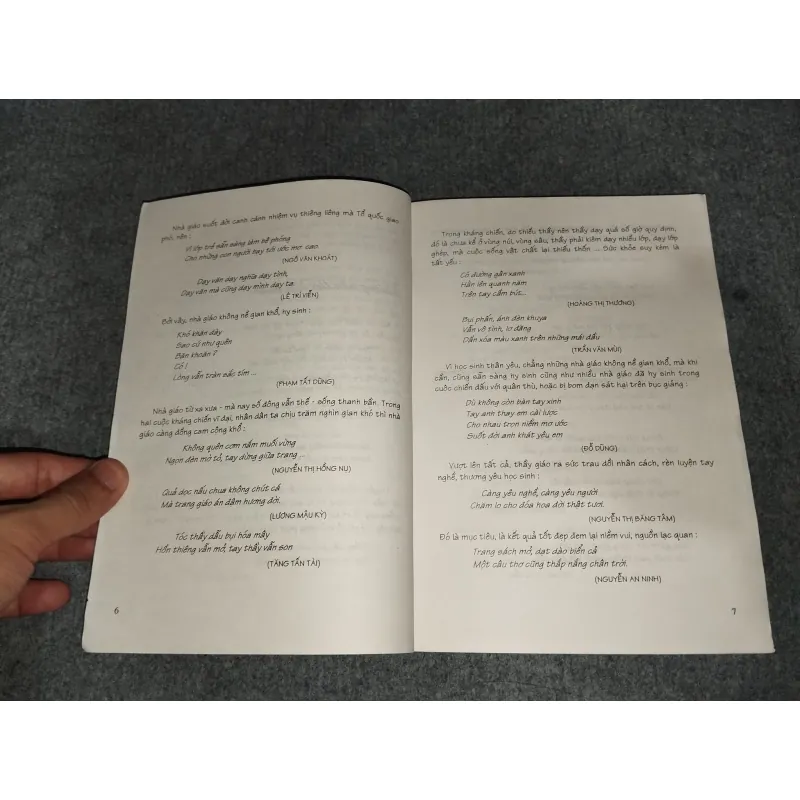 Nhà giáo suốt đời canh cánh nhiệm vụ thiêng liêng mà Tổ quốc giao
phó, nên :
Vì lớp trẻ sẵn sàng làm bệ phóng
Cho những con người bay tới ước mơ cao
(NGÔ VĂN KHOÁT)
Dạy văn dạy nghĩa dạy tình,
Dạy văn mà cũng dạy mình dạy ta
(LÊ TRÍ VIỄN)
Bởi vậy, nhà giáo không nề gian khổ, hy sinh :
Khó khăn đấy
Sao cứ như quên
Băn khoăn ?
Có !
Lòng vẫn tràn sắc tím ...
(PHẠM TẤT DŨNG)
Nhà giáo từ xa xưa - mà nay số đông vẫn thế - sống thanh bần. Trong
hai cuộc kháng chiến vĩ đại, nhân dân ta chịu trăm nghìn gian khó thì nhà
giáo càng đồng cam cộng khổ :
Không quên cơm nắm muối vừng
Ngọn đèn mờ tỏ, tay dừng giữa trang ...
(NGUYỄN THỊ HỒNG NỤ)
Quả dọc nấu chua không chút cá
Mà trang giáo án đậm hương đời.
(LƯƠNG MẬU KỲ)
Tóc thầy dẫu bụi hóa mây
Hồn thiêng vẫn mở, tay thầy vẫn son
(TĂNG TẤN TÀI)
6
Trong kháng chiến, do thiếu thầy nên thầy dạy quá số giờ quy định,
đó là chưa kể ở vùng núi, vùng sâu, thầy phải kiêm dạy nhiều lớp, dạy lớp
ghép, mà cuộc sống vật chất lại thiếu thốn ... Sức khỏe suy kém là
tất yếu :
Có đường gân xanh
Hằn lên quanh năm
Trên tay cầm bút...
(HOÀNG THỊ THƯƠNG)
Bụi phấn, ánh đèn khuya
Vẫn vô tình, lơ đãng
Dần xóa màu xanh trên những mái đầu
(TRẦN VĂN MÙI)
Vì học sinh thân yêu, chẳng những nhà giáo không nề gian khổ, mà khi
cần, cũng sẵn sàng hy sinh cũng như nhiều nhà giáo đã hy sinh trong
cuộc chiến đấu với quân thù, hoặc bị bom đạn sát hại trên bục giảng :
Dù không còn bàn tay xinh
Tay anh thay em cài lược
Cho nhau trọn niềm mơ ước
Suốt đời anh khát yêu em
(ĐỖ DŨNG)
Vượt lên tất cả, thầy giáo ra sức trau dồi nhân cách, rèn luyện tay
nghề, thương yêu học sinh :
Càng yêu nghề, càng yêu người
Chăm lo cho đóa hoa đời thật tươi.
(NGUYỄN THỊ BĂNG TÂM)
Đó là mục tiêu, là kết quả tốt đẹp đem lại niềm vui, nguồn lạc quan :
Trang sách mở, dạt dào biển cả
Một câu thơ cũng thắp nắng chân trời.
(NGUYỄN AN NINH)
7